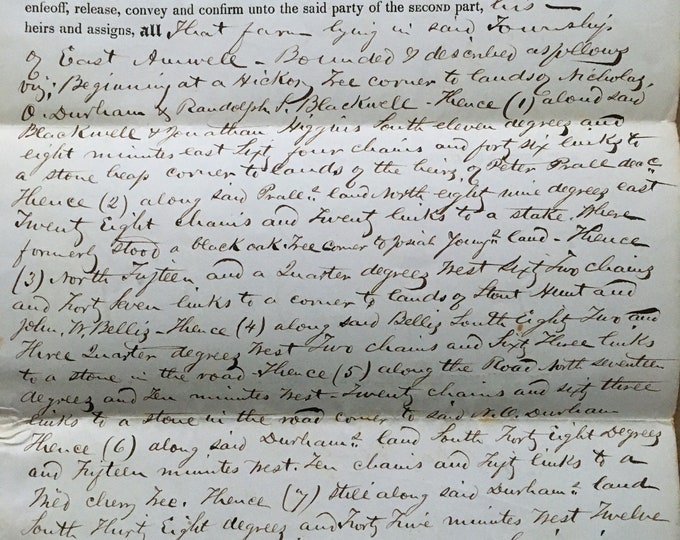 enfeoff, release, convey and confirm unto the said party of the SECOND part, his
heirs and assigns, all That farm lying in said Township
of East Amwell - Bounded & described as follows
viz; Beginning at a Hickory Tree corner to lands of Nicholas
O. Durham & Randolph S. Blackwell - Thence (1) along said
Blackwell & Jonathan Higgins South eleven degrees and
eight minutes east Sixty four chains and forty six links to
a stone heap corner to lands of the heirs of Peter Prall decd
Thence (2) along said Pralls land North eighty nine degrees east
Twenty Eight chains and Twenty links to a stake Where
formerly stood a black oak Tree corner to Josiah Youngs land - Thence
(3) North Fifteen and a Quarter degrees West Sixty Two chains
and Forty Seven links to a corner to lands of Stout Hunt and
John W. Bellis - Thence (4) along said Bellis South Eighty Two and
Three Quarter degrees West Two chains and Sixty Three links
to a stone in the road - Thence (5) along the Road North seventeen
degrees and Ten minutes West - Twenty chains and sixty three
links to a stone in the road corner to said N. O. Durham
Thence (6) along said Durhams land South Forty Eight Degrees
and Fifteen minutes West. Ten chains and links to a
Wild cherry Tree. Thence (7) Still along said Durhams land
South Thirty Eight degrees and Forty Five minutes West Twelve